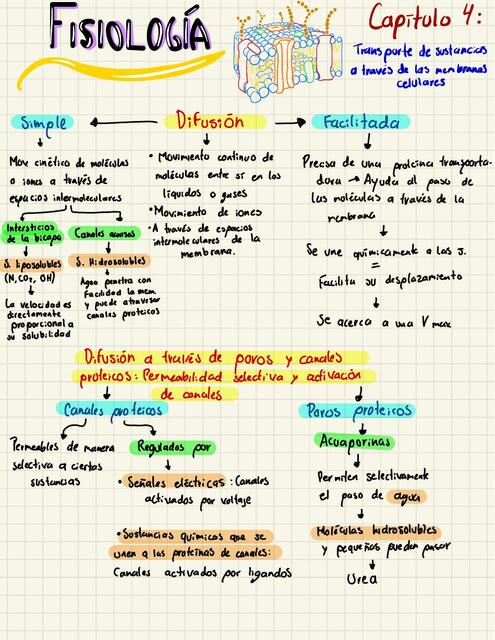 FISIOLOGÍA
Capítulo 4:
Transporte de sustancias
a través de las membranas
celulares
Simple
Difusión
Facilitada
Mov cinético de moléculas
o iones a través de
espacios intermoleculares
Intersticios
de la bicapa
Canales acuosos
S. liposolubles
(N, CO₂, OH)
S. Hidrosolubles
La velocidad es
directamente
proporcional a
su solubilidad
Agua penetra con
Facilidad la mem
y puede atravesar
canales proteicos
• Movimiento continuo de
moléculas entre sí en los
líquidos o gases
• Movimiento de iones
• A través de espacios
intermoleculares de la
membrana.
Precisa de una proteína transporta-
dora → Ayuda al paso de
las moléculas a través de la
membrana
Se une químicamente a las s.
=
Facilita su desplazamiento
Se acerca a una V max
Difusión a través de poros y canales
proteicos: Permeabilidad selectiva y activación
de canales
Canales proteicos
Permeables de manera
selectiva a ciertas
sustancias
Regulados por
• Señales eléctricas: Canales
activados por voltaje
• Sustancias químicas que se
unen a las proteínas de canales:
Canales activados por ligandos
Poros proteicos
Acuaporinas
Permiten selectivamente
el paso de agua
Moléculas hidrosolubles
y pequeñas pueden pasar
Urea